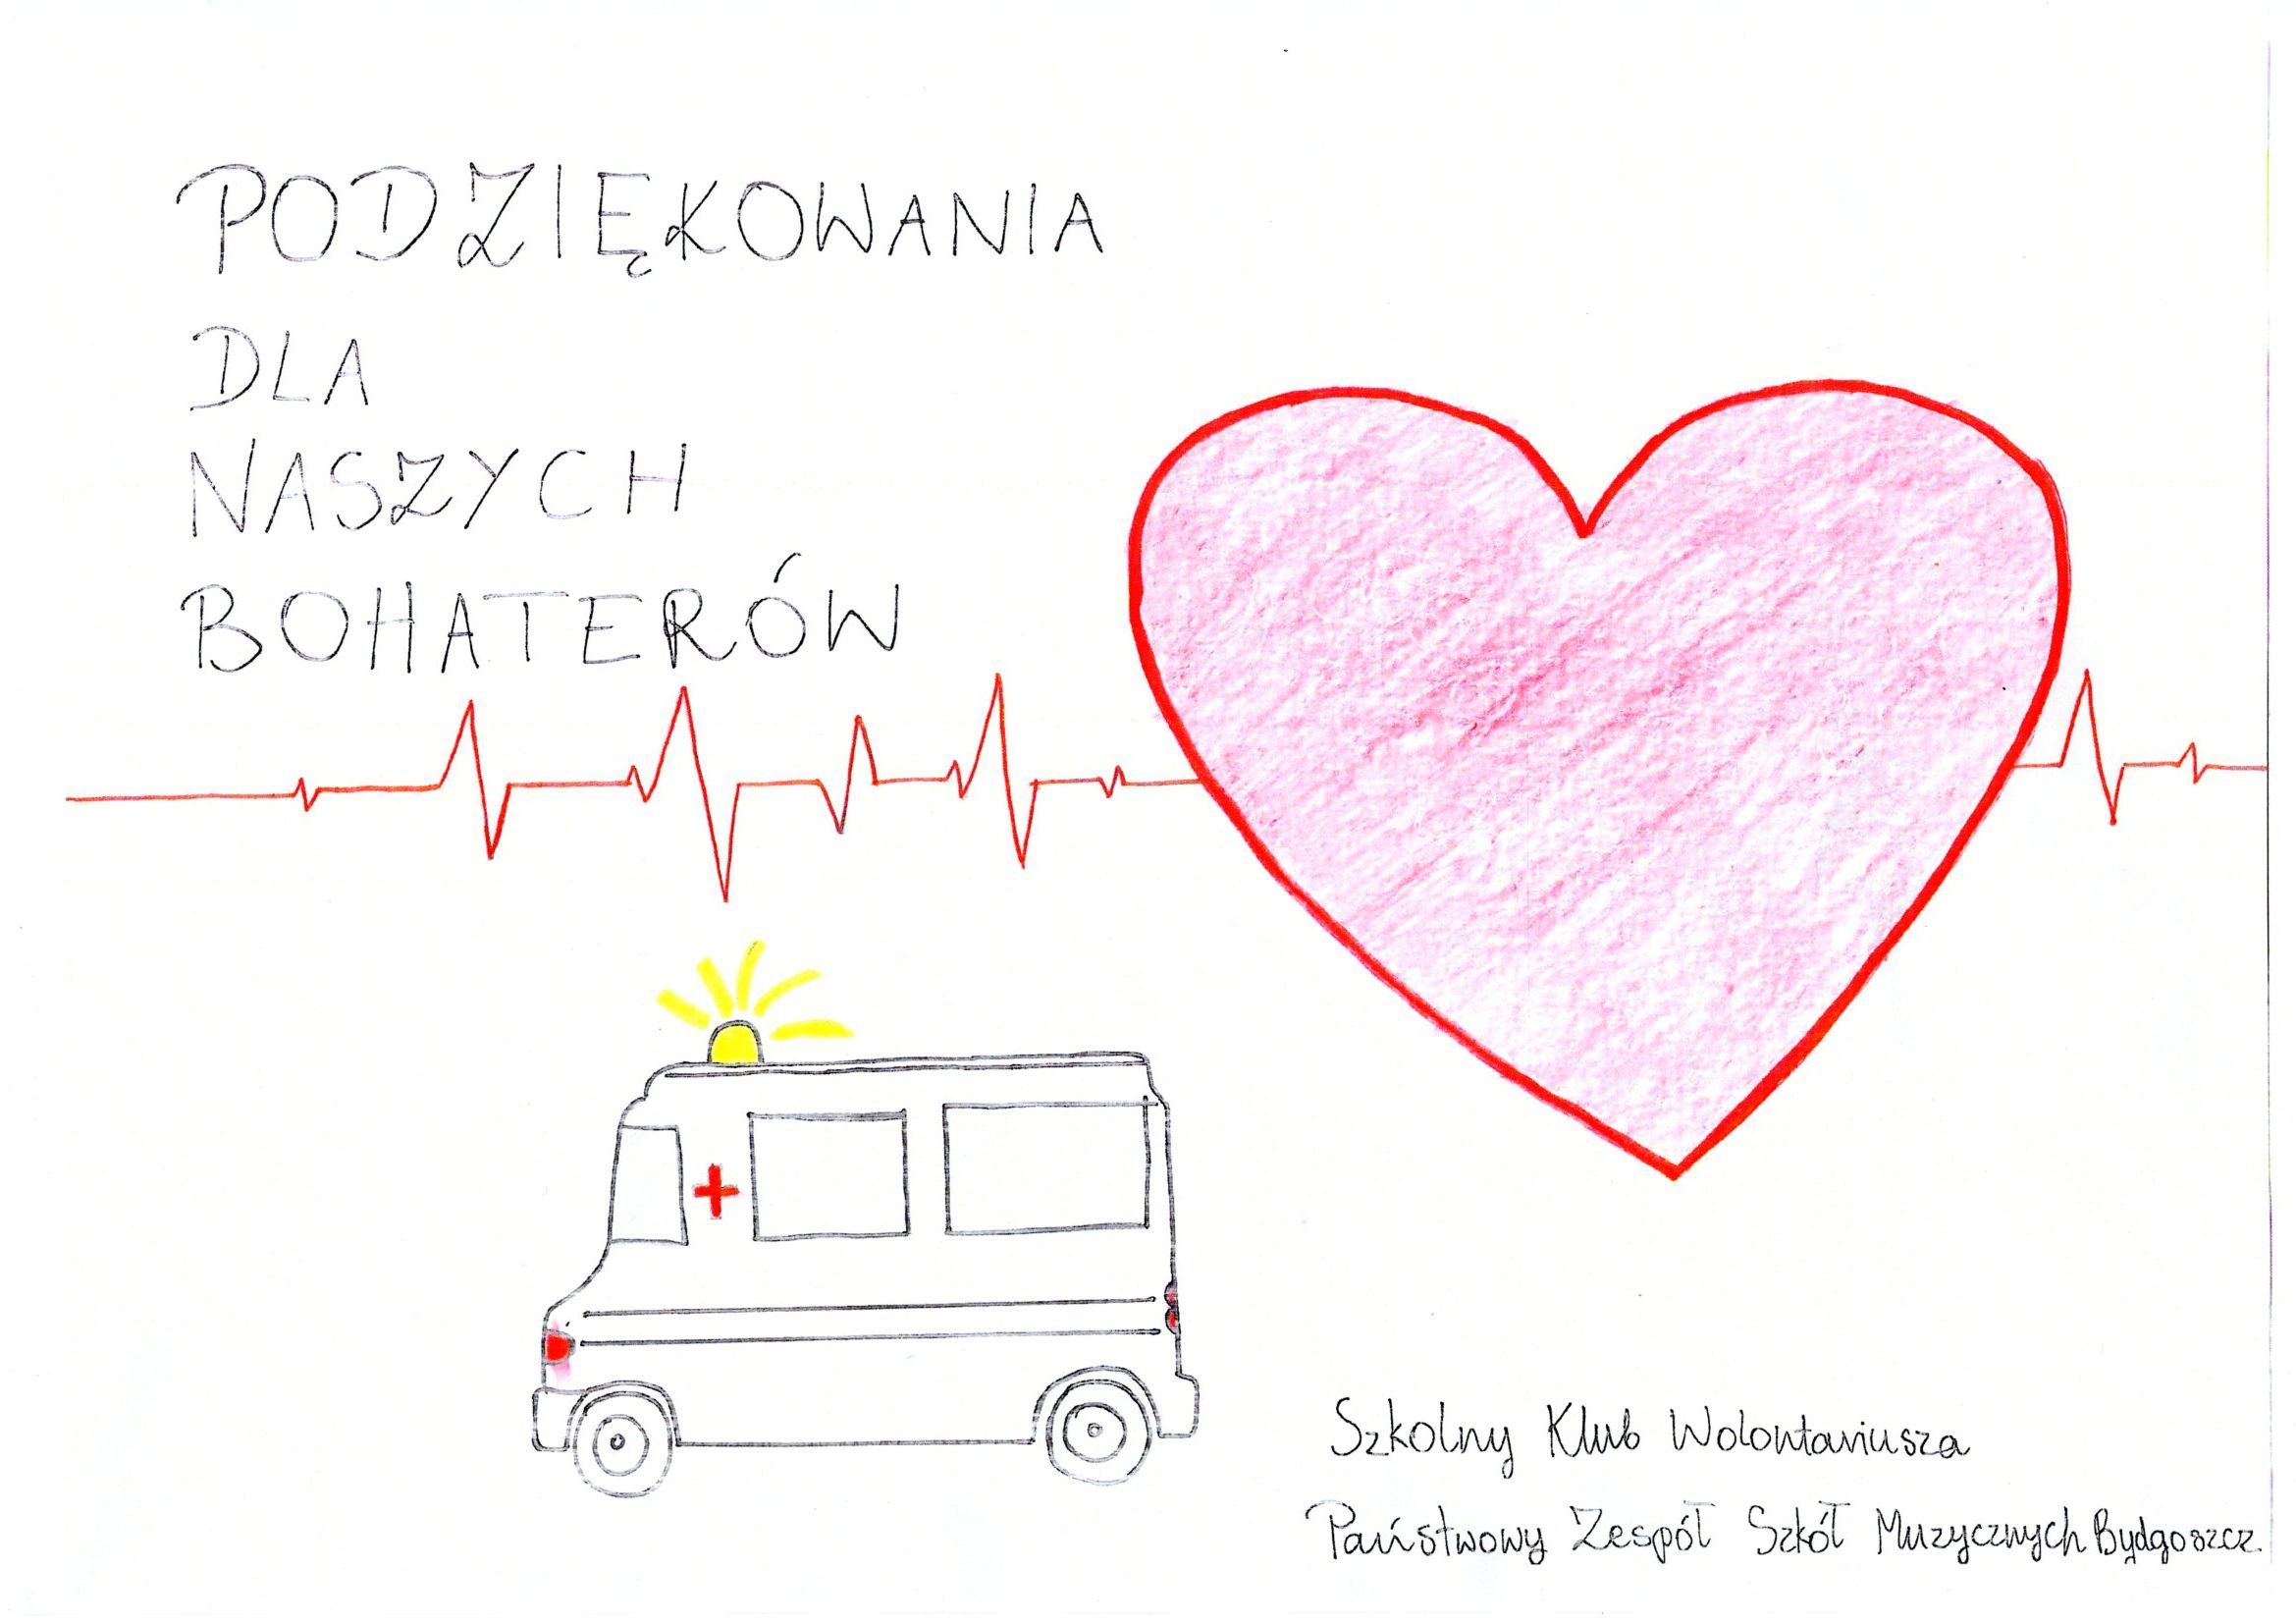 PODZIĘKOWANIA
DLA
NASZYCH
BOHATERÓW
Szkolny Klub Wolontariusza
Państwowy Zespół Szkół Muzycznych Bydgoszcz.